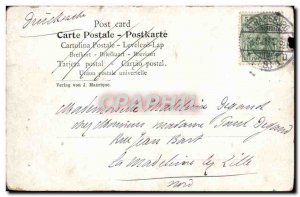 Drucksache
Post card
Carte Postale - Postkarte
Cartolina Postale - Levelezö-Lap
Brefkort - Briefkaart - Brevkort
Tarjeta postal - Cartão postal.
Union postale universelle
Verlag von J. Manrique.
Mademoiselle Madeleine Degand
chez Monsieur Madame Paul Degand
Rue Jean Bart
La Madeleine lez Lille
Nord